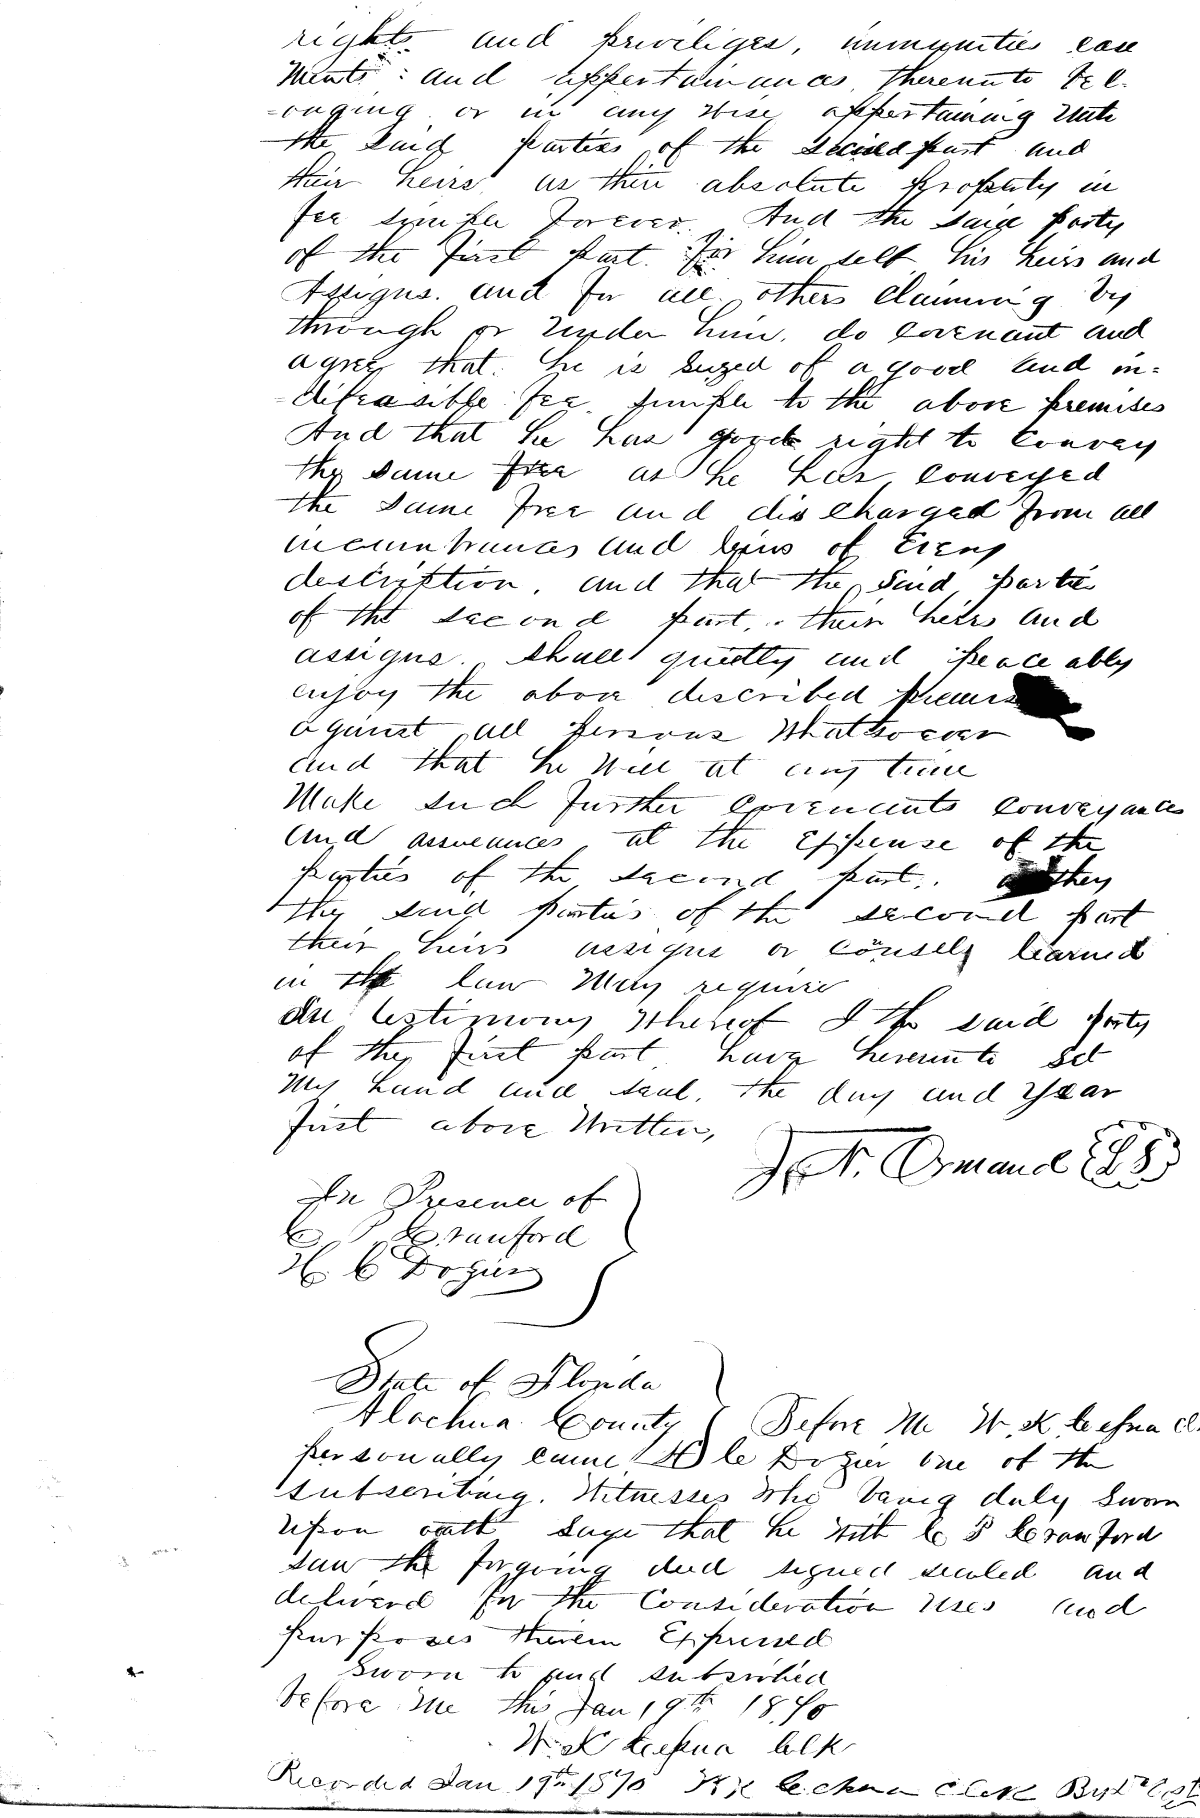 rights and priviliges, immunities ease
ments: and appertainances thereunto bel-
-onging or in any wise appertaining unto
the said parties of the second part and
their heirs as their absolute property in
fee simple forever. And the said party
of the first part. for him self his heirs and
Assigns. and for all others Claiming by
through or under him. do Covenant and
agree that. he is Seized of a good and in=
-difeasible fee. simple to the above premises
And that he has good right to Convey
the same free as he has Conveyed
the same free and discharged from all
incumbrances and liens of Every
description. and that the Said parties
of the second part. their heirs and
assigns. shall quietly and peaceably
enjoy the above described
against all persons Whatsoever
and that he Will at any time
Make such further Covenants Conveyances
and assurances at the Expense of the
parties of the second part. as they
the said parties of the second part
their heirs assigns or Counsels learned
in the law May require
In testimony Whereof I the said party
of the first part have hereunto set
My hand and seal. the day and year
first above Written,
N. Ormand LS
In Presence of
C P Cranford
H C Dozier
State of Florida
Alachua County Before Me W. K.
personally came H C Dozier one of the
subscribing. Witnesses Who being duly Sworn
Upon oath Says that he With C P Crawford
saw the forgoing deed signed sealed and
deliverd for the Consideration Uses and
purposes therein Expressed
Sworn to and subscribed
before Me this Jan 19th 1870
W. K Clk
Recorded Jan 19th 1870 Clerk By